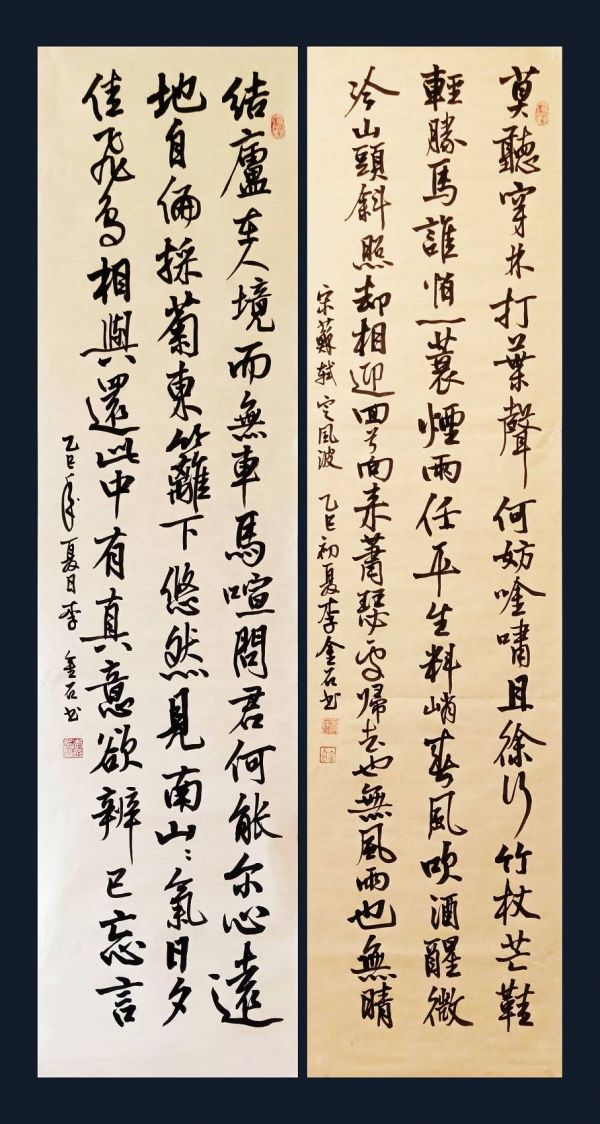 莫聽穿林打葉聲何妨唫嘯且徐行竹杖芒鞋
輕勝馬誰怕一蓑煙雨任平生料峭春風吹酒醒微
冷山頭斜照却相迎回首向来蕭瑟處歸去也無風雨也無晴
宋蘇軾定風波 乙巳初夏李金石书
结廬在人境而無車馬喧問君何能尔心遠
地自偏採菊東籬下悠然見南山〻氣日夕
佳飛鳥相與還此中有真意欲辨已忘言
乙巳年夏日李金石书